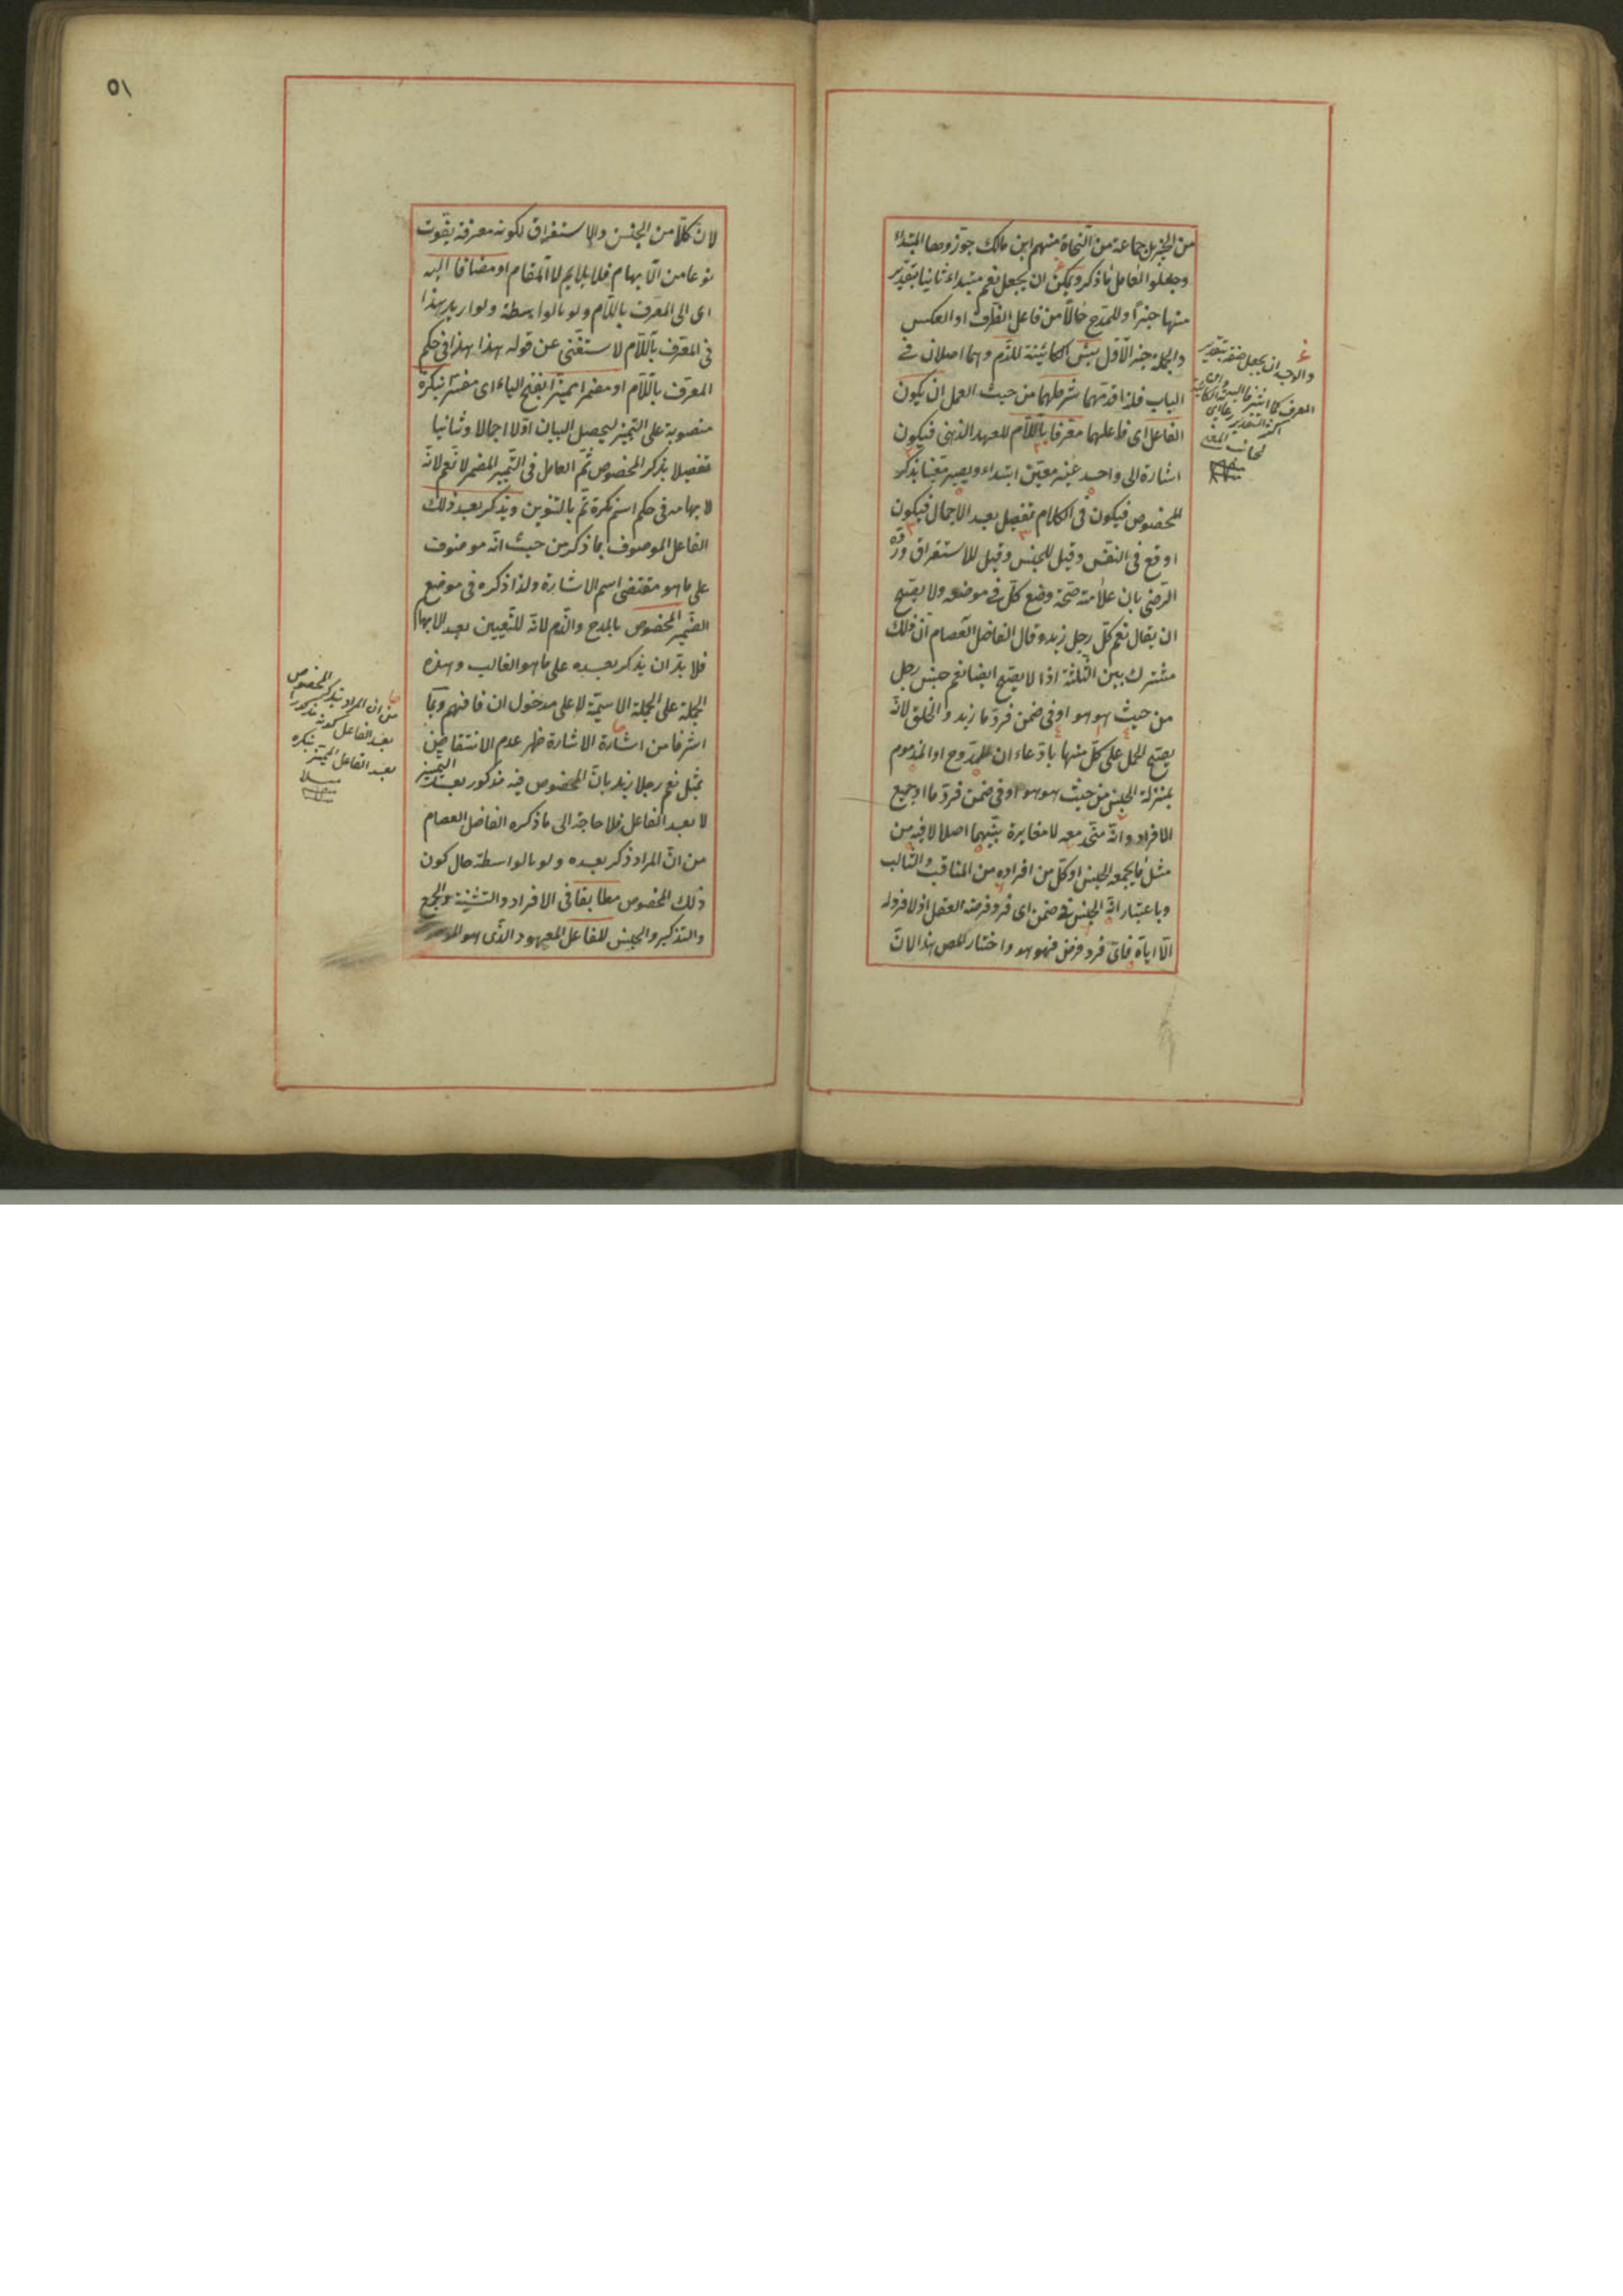 من الخبر بل جماعة من النحاة منهم ابن مالك جوّزوهما المبتداء
وجعلوا العامل ما ذكر ويمكن ان يجعل نعم مبتداء ثانيا بتقدير
منها خبرا وللمدح حالا من فاعل الظرف او العكس
والجملة خبر الاول بئس الكائنة للذم وهما اصلان في
الباب فلذا قدمهما شرطهما من حيث العمل ان يكون
الفاعل اى فاعلهما معرفا باللام للعهد الذهنى فيكون
اشارة الى واحد غير معين ابتداء ويصير معينا بذكر
المخصوص فيكون فى الكلام تفصيل بعد الاجمال فيكون
اوقع فى النفس وقيل للجنس وقيل للاستغراق ورده
الرضى بان علامته صحة وضع كل فى موضعه ولا يصح
ان يقال نعم كل رجل زيد وقال الفاضل العصام ان ذلك
مشترك بين الثلثة اذ لا يصح ايضا نعم جنس رجل
من حيث هو هو او فى ضمن فرد ما زيد والخلق لانه
يصح الحمل على كل منها بادعاء ان الممدوح او المذموم
بمنزلة الجنس من حيث هو هو او فى ضمن فرد ما او جميع
الافراد وانه متحد معه لا مغايرة بينهما اصلا لا فيه من
مثل ما يجمعه الجنس او كل من افراده من المناقب والمثالب
وباعتبار ان الجنس فى ضمن اى فرد فرضه العقل اذ لا فرد له
الا اياه فاى فرد فرض فهو هو واختار المص هذا لان
والاوجه ان يجعل صفة بتقدير
المعرف كما اشرنا اليه
٥١
لان كلا من الجنس والاستغراق لكونه معرفة يفوت
نوعا من الابهام فلا يلايم لا المقام او مضافا اليه
اى الى المعرف باللام ولو بالواسطة ولو اريد بهذا
فى المعرف باللام لاستغنى عن قوله هذا هذا فى حكم
المعرف باللام او مضمرا مميزا بفتح الياء اى مفسرا بنكرة
منصوبة على التمييز ليحصل البيان اولا اجمالا وثانيا
تفصيلا بذكر المخصوص ثم العامل فى التمييز المضمر لا نعم لانه
لابهامه فى حكم اسم نكرة تم بالتنوين ويذكر بعد ذلك
الفاعل الموصوف بما ذكر من حيث انه موصوف
على ما هو مقتضى اسم الاشارة ولذا ذكره فى موضع
الضمير المخصوص بالمدح والذم لانه للتعيين بعد الابهام
فلا بد ان يذكر بعده على ما هو الغالب وهذه
الجملة على الجملة الاسمية لا على مدخول ان فافهم وبما
اشرنا من اشارة الاشارة ظهر عدم الانتقاض
بمثل نعم رجلا زيد بان المخصوص فيه مذكور بعد التمييز
لا بعد الفاعل فلا حاجة الى ما ذكره الفاضل العصام
من ان المراد ذكر بعده ولو بالواسطة حال كون
ذلك المخصوص مطابقا فى الافراد والتثنية والجمع
والتذكير والجنس للفاعل المعهود الذى هو
من ان المراد بذكر المخصوص
بعد الفاعل كونه مذكورا
بعد الفاعل المميز بنكرة